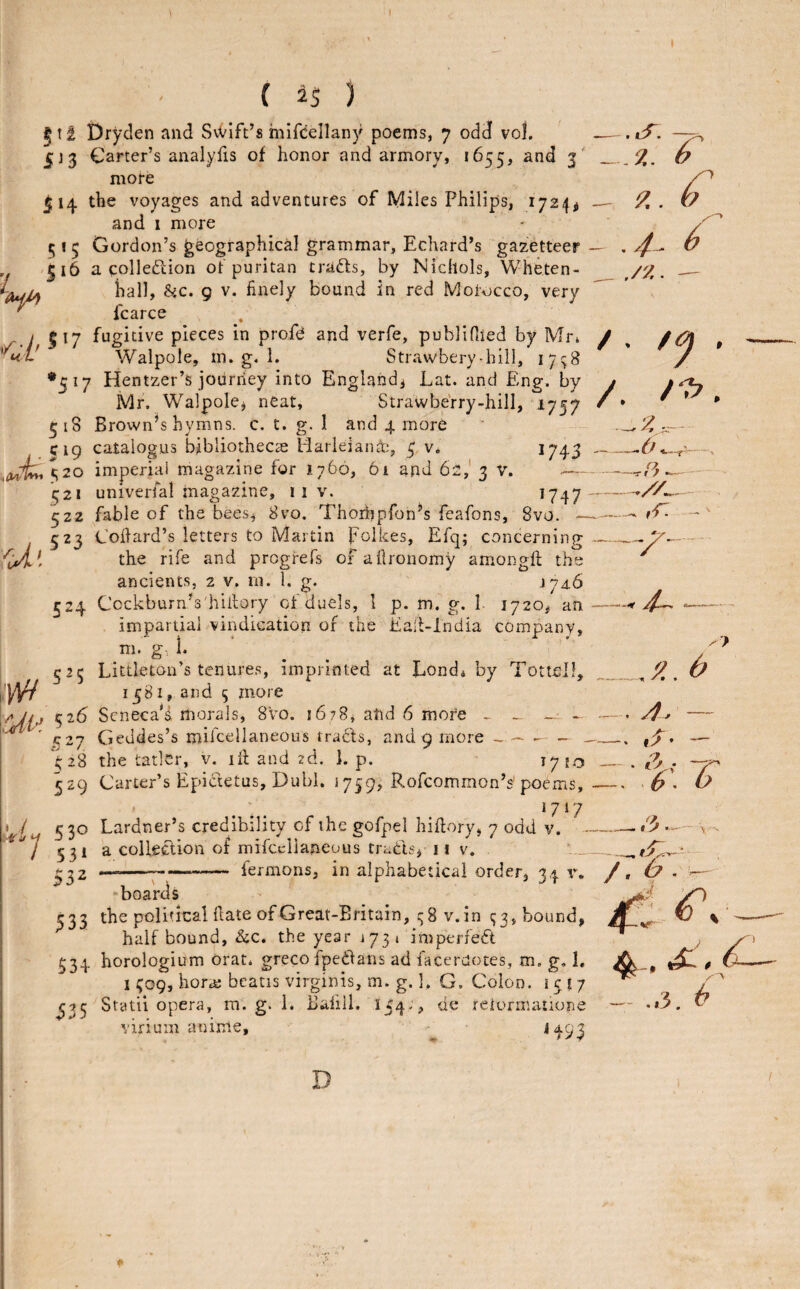 ( 25 )
512 Dryden and Swift's miſcellany poems, 7 odd vol. —. 5. —
513 Carter's analyſis of honor and armory, 1655, and 3 —. 2. 6
more
514 the voyages and adventures of Miles Philips, 1724, — 2. 6
and 1 more
515 Gordon's geographical grammar, Echard's gazetteer — . 4 - 6
516 a collection of puritan tracts, by Nichols, Wheten- — . 12. —
hall, &c. 9 v. finely bound in red Morocco, very
ſcarce
517 fugitive pieces in proſe and verſe, publiſhed by Mr. 1. 19. —
Walpole, m. g. l. Strawbery-hill, 1758
*517 Hentzer's journey into England, Lat. and Eng. by 1. 13.
Mr. Walpole, neat, Strawberry-hill, 1757
518 Brown's hymns. c. t. g. l and 4 more — 2 —
519 catalogus bibliothecæ Harleianæ, 5 v. 1743 — 6 —
520 imperial magazine for 1760, 61 and 62, 3 v. — 3 —
521 univerſal magazine, 11 v. 1747 — 11 —
522 fable of the bees, 8vo. Thompſon's ſeaſons, 8vo. — 5 —
523 Coſtard's letters to Martin Folkes, Eſq; concerning — 7 —
the riſe and progreſs of aſtronomy amongſt the
ancients, 2 v. m. l. g. 1746
524 Cockburn's hiſtory of duels, l p. m. g. l 1720, an — 4 —
impartial vindication of the Eaſt-India company,
m. g. l.
525 Littleton's tenures, imprinted at Lond. by Tottell, — . 2. 6
1581, and 5 more
526 Seneca's morals, 8vo. 1678, and 6 more — . 4 —
527 Geddes's miſcellaneous tracts, and 9 more — . 5. —
528 the tatler, v. iſt and 2d. l. p. 1710 — . 3. —
529 Carter's Epictetus, Dubl. 1759, Roſcommon's poems, — . 6. 6
1717
530 Lardner's credibility of the goſpel hiſtory, 7 odd v. — 3 —
531 a collection of miſcellaneous tracts, 11 v. — 5 —
532 ———— ſermons, in alphabetical order, 34 v. 1. 6. —
boards
533 the political ſtate of Great-Britain, 38 v. in 33, bound, 4. 6. —
half bound, &c. the year 1731 imperfect
534 horologium orat. greco ſpectans ad ſacerdotes, m. g. l. 4. 6 —
1509, horæ beatis virginis, m. g. l. G. Colon. 1517
535 Statii opera, m. g. l. Baſill. 154-, de reformatione — . 3. 6
virium anime, 1493
D